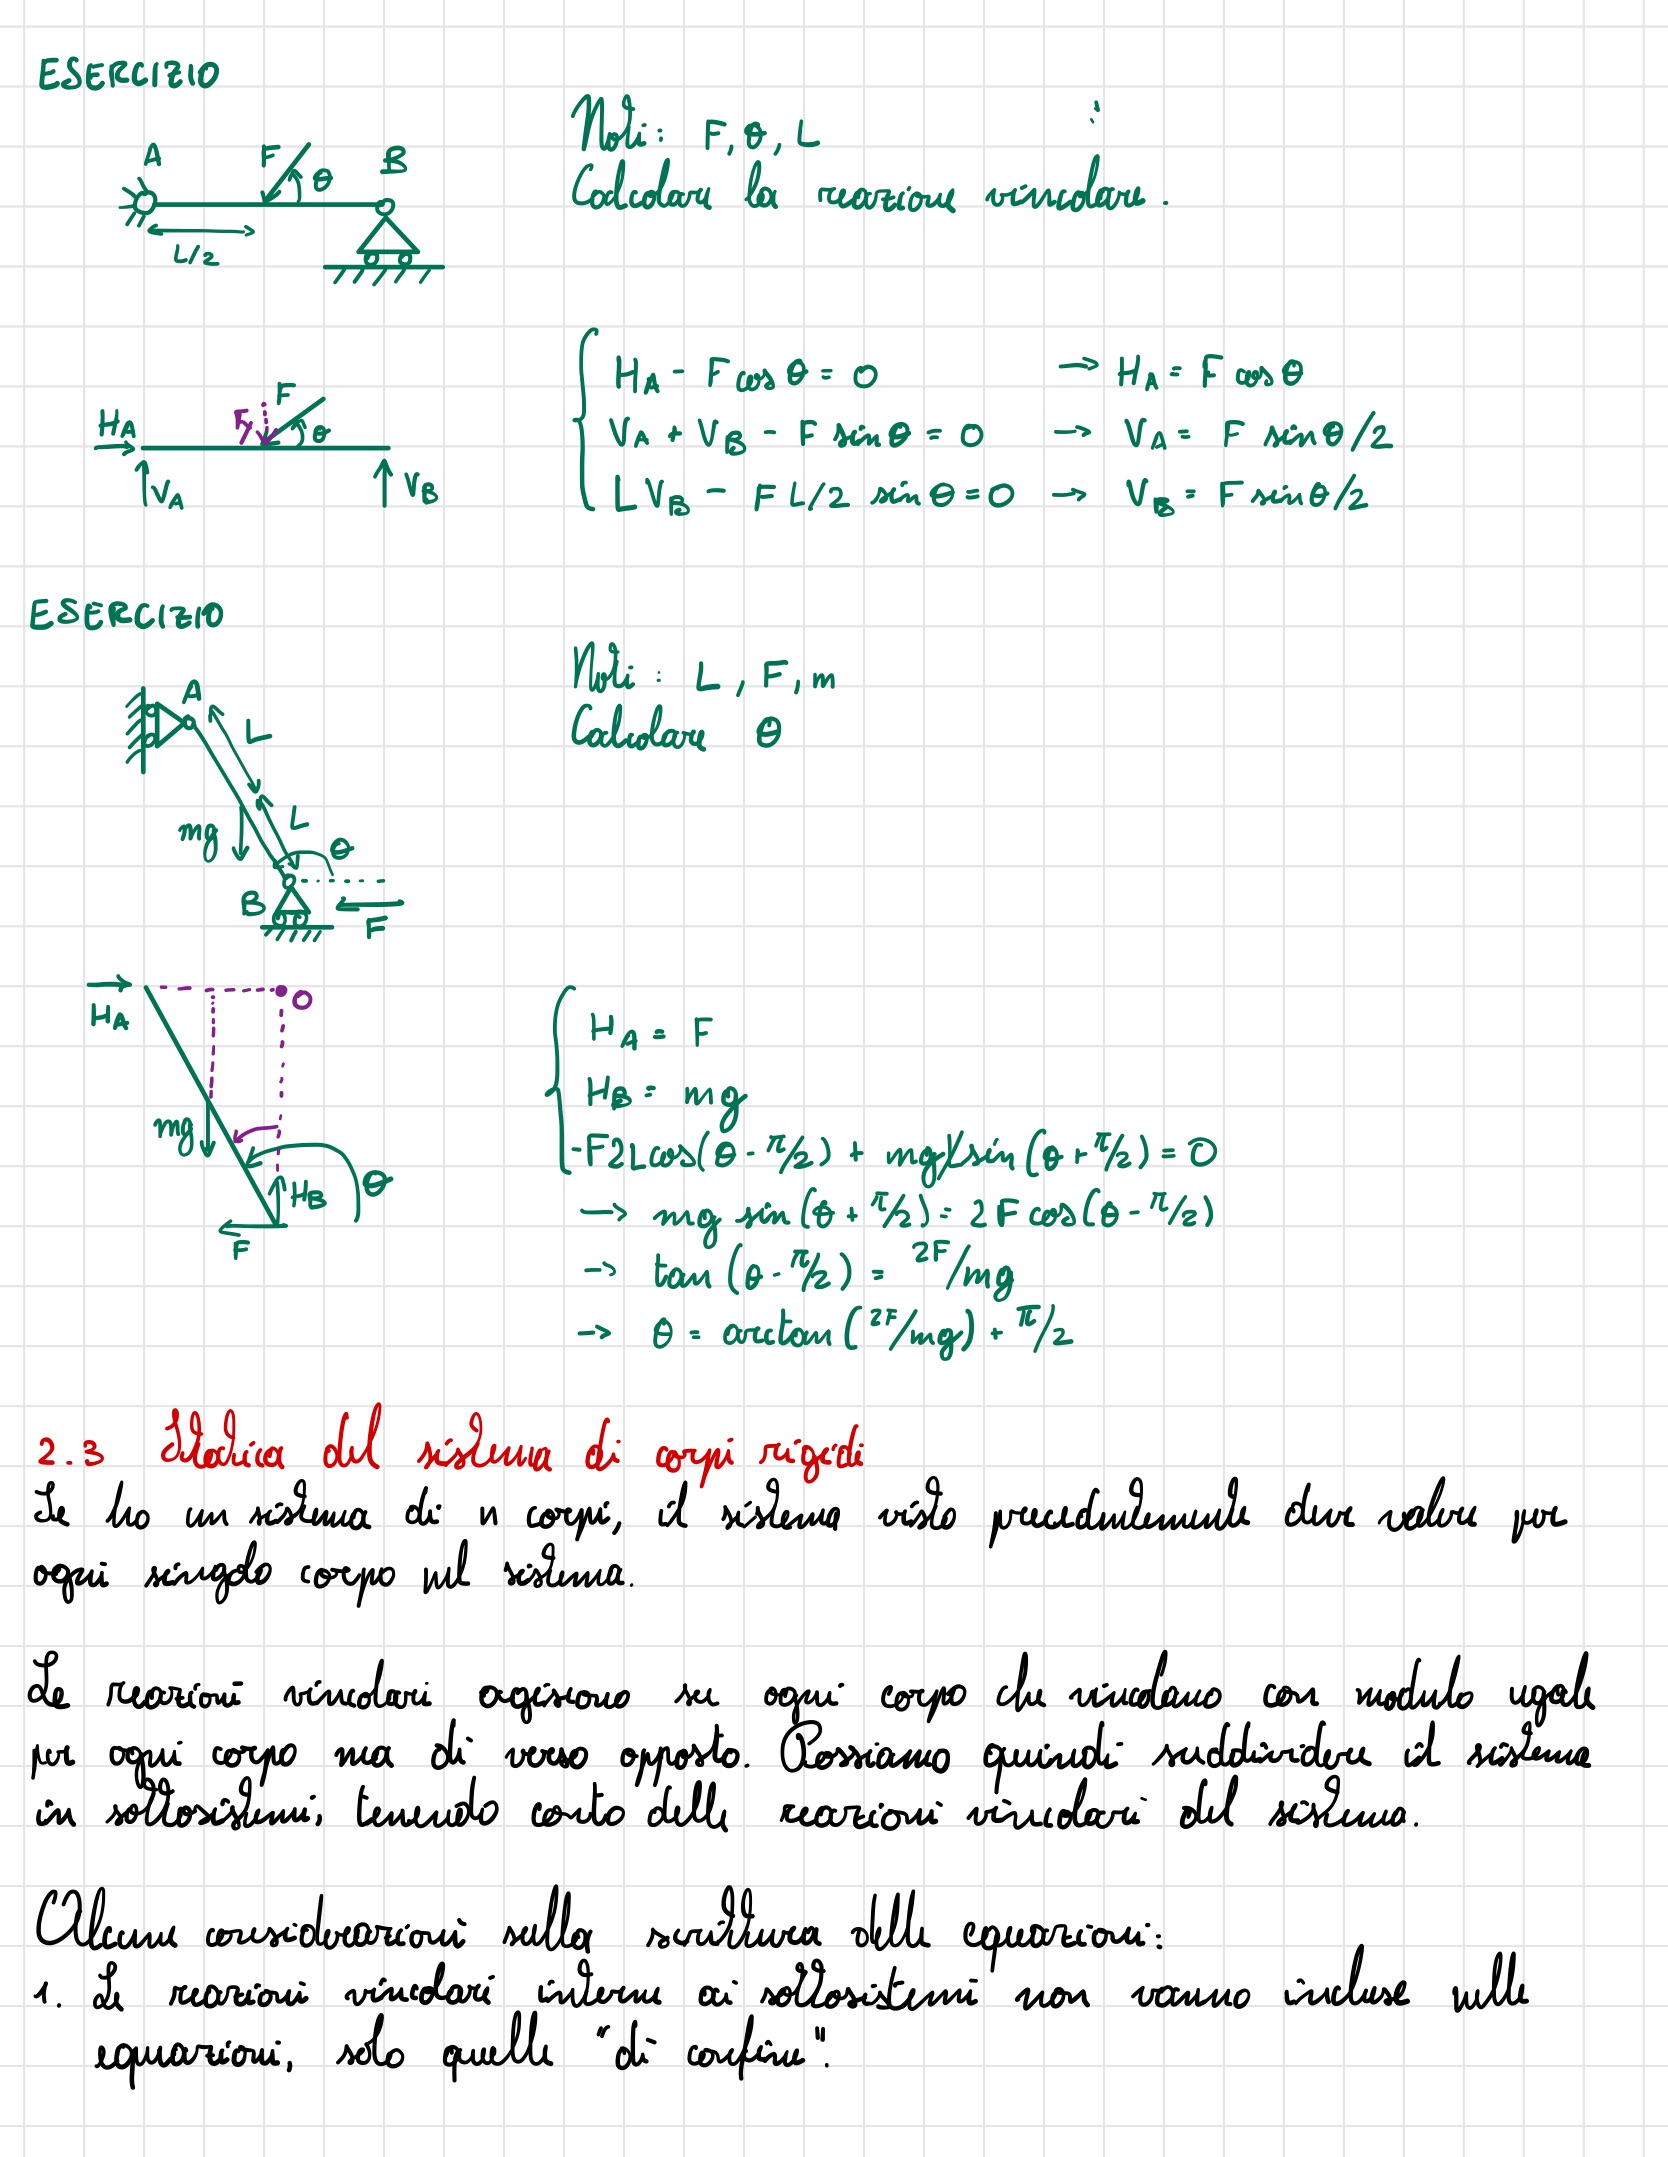 ESERCIZIO
A F θ B
L/2
Noti: F, θ, L
Calcolare la reazione vincolare.
H_A F_y F θ
V_A V_B
H_A - F cos θ = 0 → H_A = F cos θ
V_A + V_B - F sin θ = 0 → V_A = F sin θ/2
L V_B - F L/2 sin θ = 0 → V_B = F sin θ/2
ESERCIZIO
A L
mg L θ
B F
Noti: L, F, m
Calcolare θ
H_A O
mg θ
H_B
F
H_A = F
H_B = mg
-F2Lcos(θ - π/2) + mgL sin(θ + π/2) = 0
→ mg sin(θ + π/2) = 2F cos(θ - π/2)
→ tan(θ - π/2) = 2F/mg
→ θ = arctan(2F/mg) + π/2
2.3 Statica del sistema di corpi rigidi
Se ho un sistema di n corpi, il sistema visto precedentemente deve valere per
ogni singolo corpo nel sistema.
Le reazioni vincolari agiscono su ogni corpo che vincolano con modulo ugale
per ogni corpo ma di verso opposto. Possiamo quindi suddividere il sistema
in sottosistemi, tenendo conto delle reazioni vincolari del sistema.
Alcune considerazioni sulla scrittura delle equazioni:
1. Le reazioni vincolari interne ai sottosistemi non vanno incluse nelle
equazioni, solo quelle "di confine".